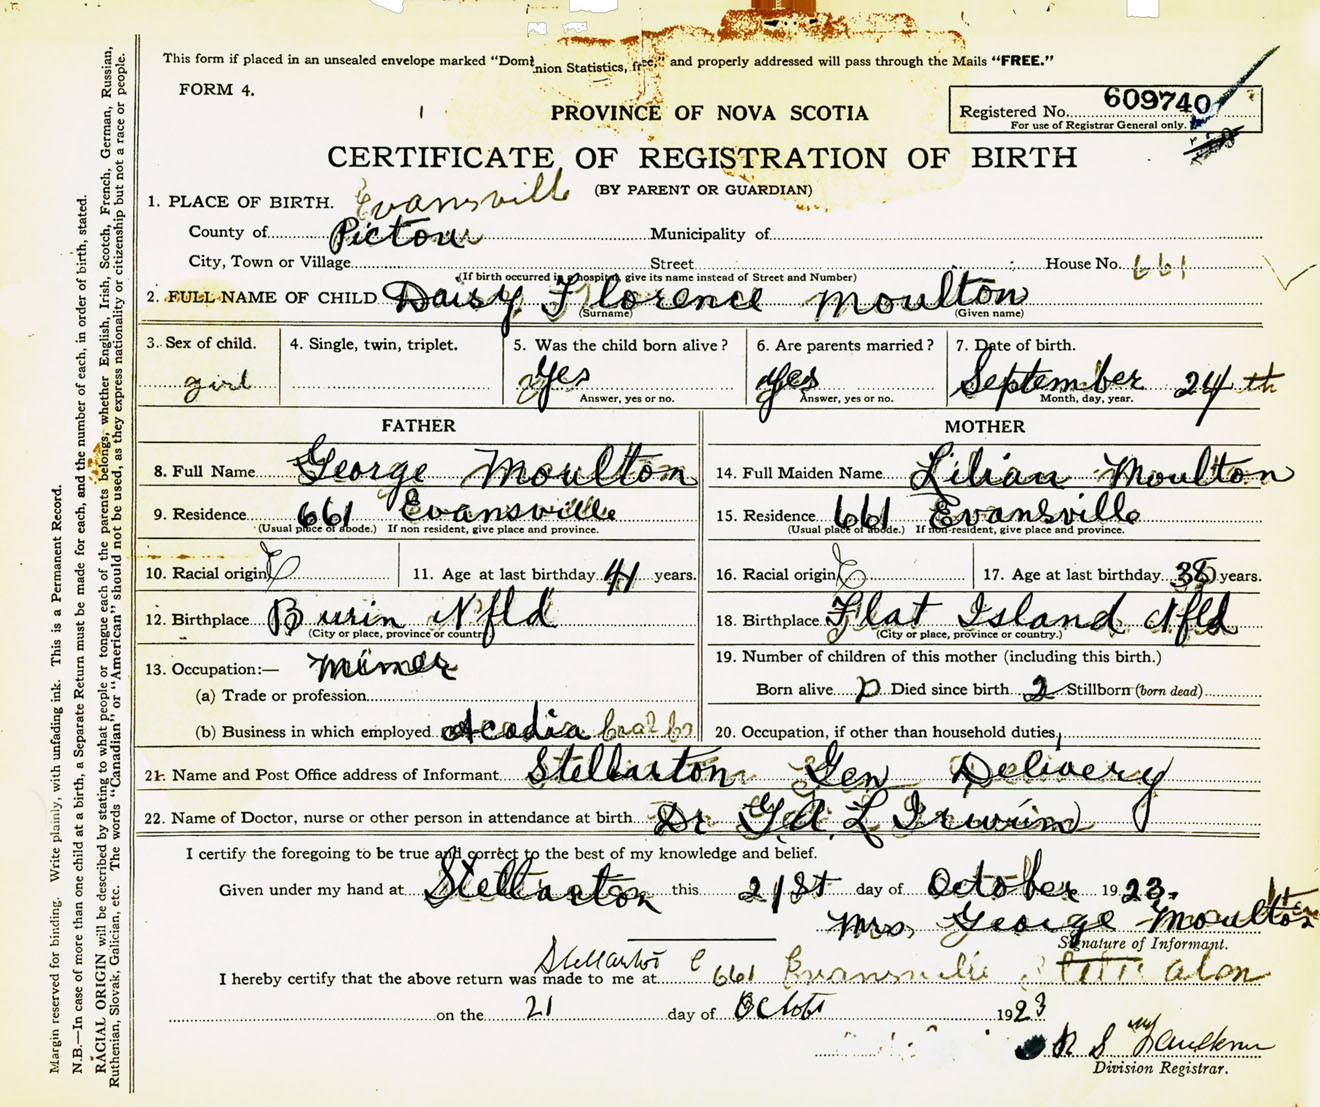 This form if placed in an unsealed envelope marked "Dominion Statistics, free," and properly addressed will pass through the Mails "FREE."
FORM 4.
PROVINCE OF NOVA SCOTIA
Registered No. 609740
For use of Registrar General only.
CERTIFICATE OF REGISTRATION OF BIRTH
(BY PARENT OR GUARDIAN)
1. PLACE OF BIRTH. Evansville
County of Pictou Municipality of
City, Town or Village Street House No. 661
(If birth occurred in a hospital, give its name instead of Street and Number)
2. FULL NAME OF CHILD Daisy Florence Moulton
(Surname) (Given name)
3. Sex of child. 4. Single, twin, triplet. 5. Was the child born alive? 6. Are parents married? 7. Date of birth.
girl Yes Yes September 24th
Answer, yes or no. Answer, yes or no. Month, day, year.
FATHER MOTHER
8. Full Name George Moulton 14. Full Maiden Name Lilian Moulton
9. Residence 661 Evansville 15. Residence 661 Evansville
(Usual place of abode.) If non resident, give place and province. (Usual place of abode.) If non-resident, give place and province.
10. Racial origin E 11. Age at last birthday 41 years. 16. Racial origin E 17. Age at last birthday 38 years.
12. Birthplace Burin Nfld 18. Birthplace Flat Island Nfld
(City or place, province or country) (City or place, province or country.)
13. Occupation:— Mimer 19. Number of children of this mother (including this birth.)
(a) Trade or profession Born alive Died since birth 2 Stillborn (born dead)
(b) Business in which employed Acadia 20. Occupation, if other than household duties,
21. Name and Post Office address of Informant Stellarton Gen Delivery
22. Name of Doctor, nurse or other person in attendance at birth Dr G. A. L Irwin
I certify the foregoing to be true and correct to the best of my knowledge and belief.
Given under my hand at Stellarton this 21st day of October 1923.
Mrs. George Moulton
Signature of Informant.
I hereby certify that the above return was made to me at Stellarton 661 Evansville
on the 21 day of Octobr 1923
R S Faulkner
Division Registrar.
Margin reserved for binding. Write plainly, with unfading ink. This is a Permanent Record.
N.B.—In case of more than one child at a birth, a Separate Return must be made for each, and the number of each, in order of birth, stated.
RACIAL ORIGIN will be described by stating to what people or tongue each of the parents belongs, whether English, Irish, Scotch, French, German, Russian,
Ruthenian, Slovak, Galician, etc. The words "Canadian" or "American" should not be used, as they express nationality or citizenship but not a race or people.